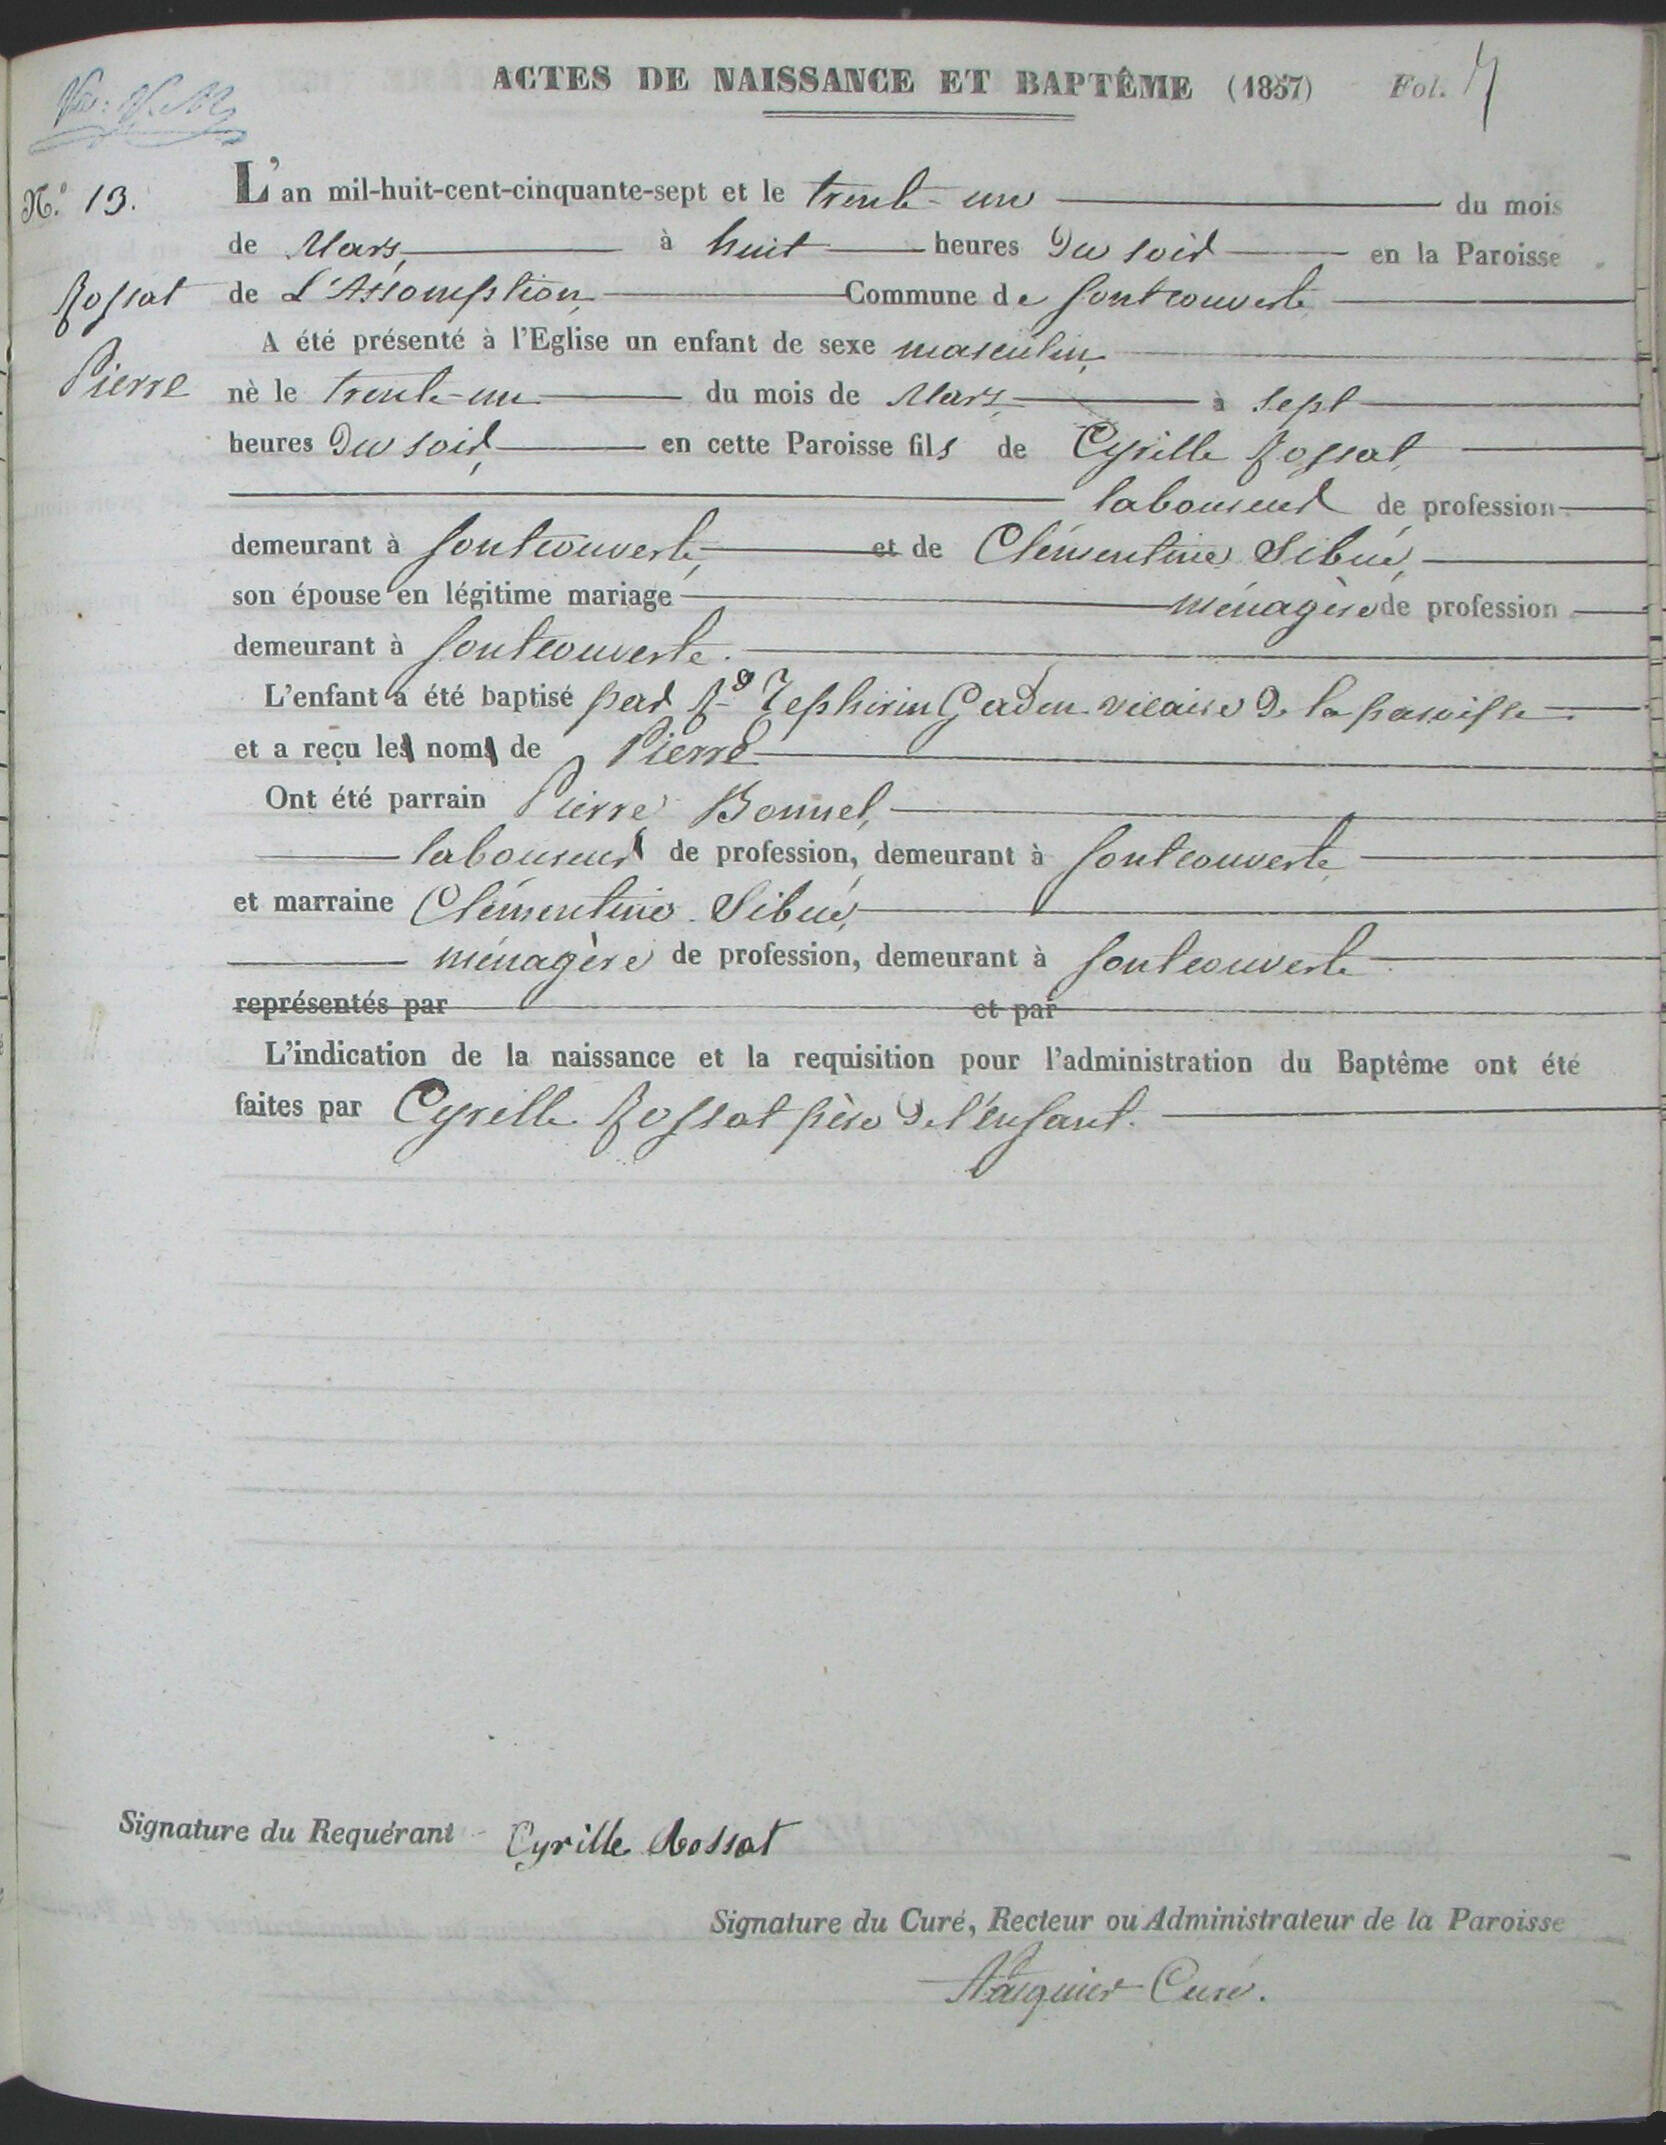 ACTES DE NAISSANCE ET BAPTÊME (1857) Fol. 7
N.° 13.
L'an mil-huit-cent-cinquante-sept et le trente-un du mois
de Mars, à huit heures du soir en la Paroisse
Rossat
de L'Assomption, Commune de fontcouverte
A été présenté à l'Eglise un enfant de sexe masculin,
Pierre
nè le trente-un du mois de Mars à sept
heures du soir, en cette Paroisse fils de Cyrille Rossat,
laboureur de profession
demeurant à fontcouverte, et de Clémentine Sibué,
son épouse en légitime mariage ménagère de profession
demeurant à fontcouverte.
L'enfant a été baptisé par Rd Zephirin vicaire de la paroisse
et a reçu les noms de Pierre
Ont été parrain Pierre Bonnel,
laboureur de profession, demeurant à fontcouverte
et marraine Clémentine Sibué,
ménagère de profession, demeurant à fontcouverte
représentés par et par
L'indication de la naissance et la requisition pour l'administration du Baptême ont été
faites par Cyrille Rossat père de l'enfant.
Signature du Requérant Cyrille Rossat
Signature du Curé, Recteur ou Administrateur de la Paroisse
Curé.